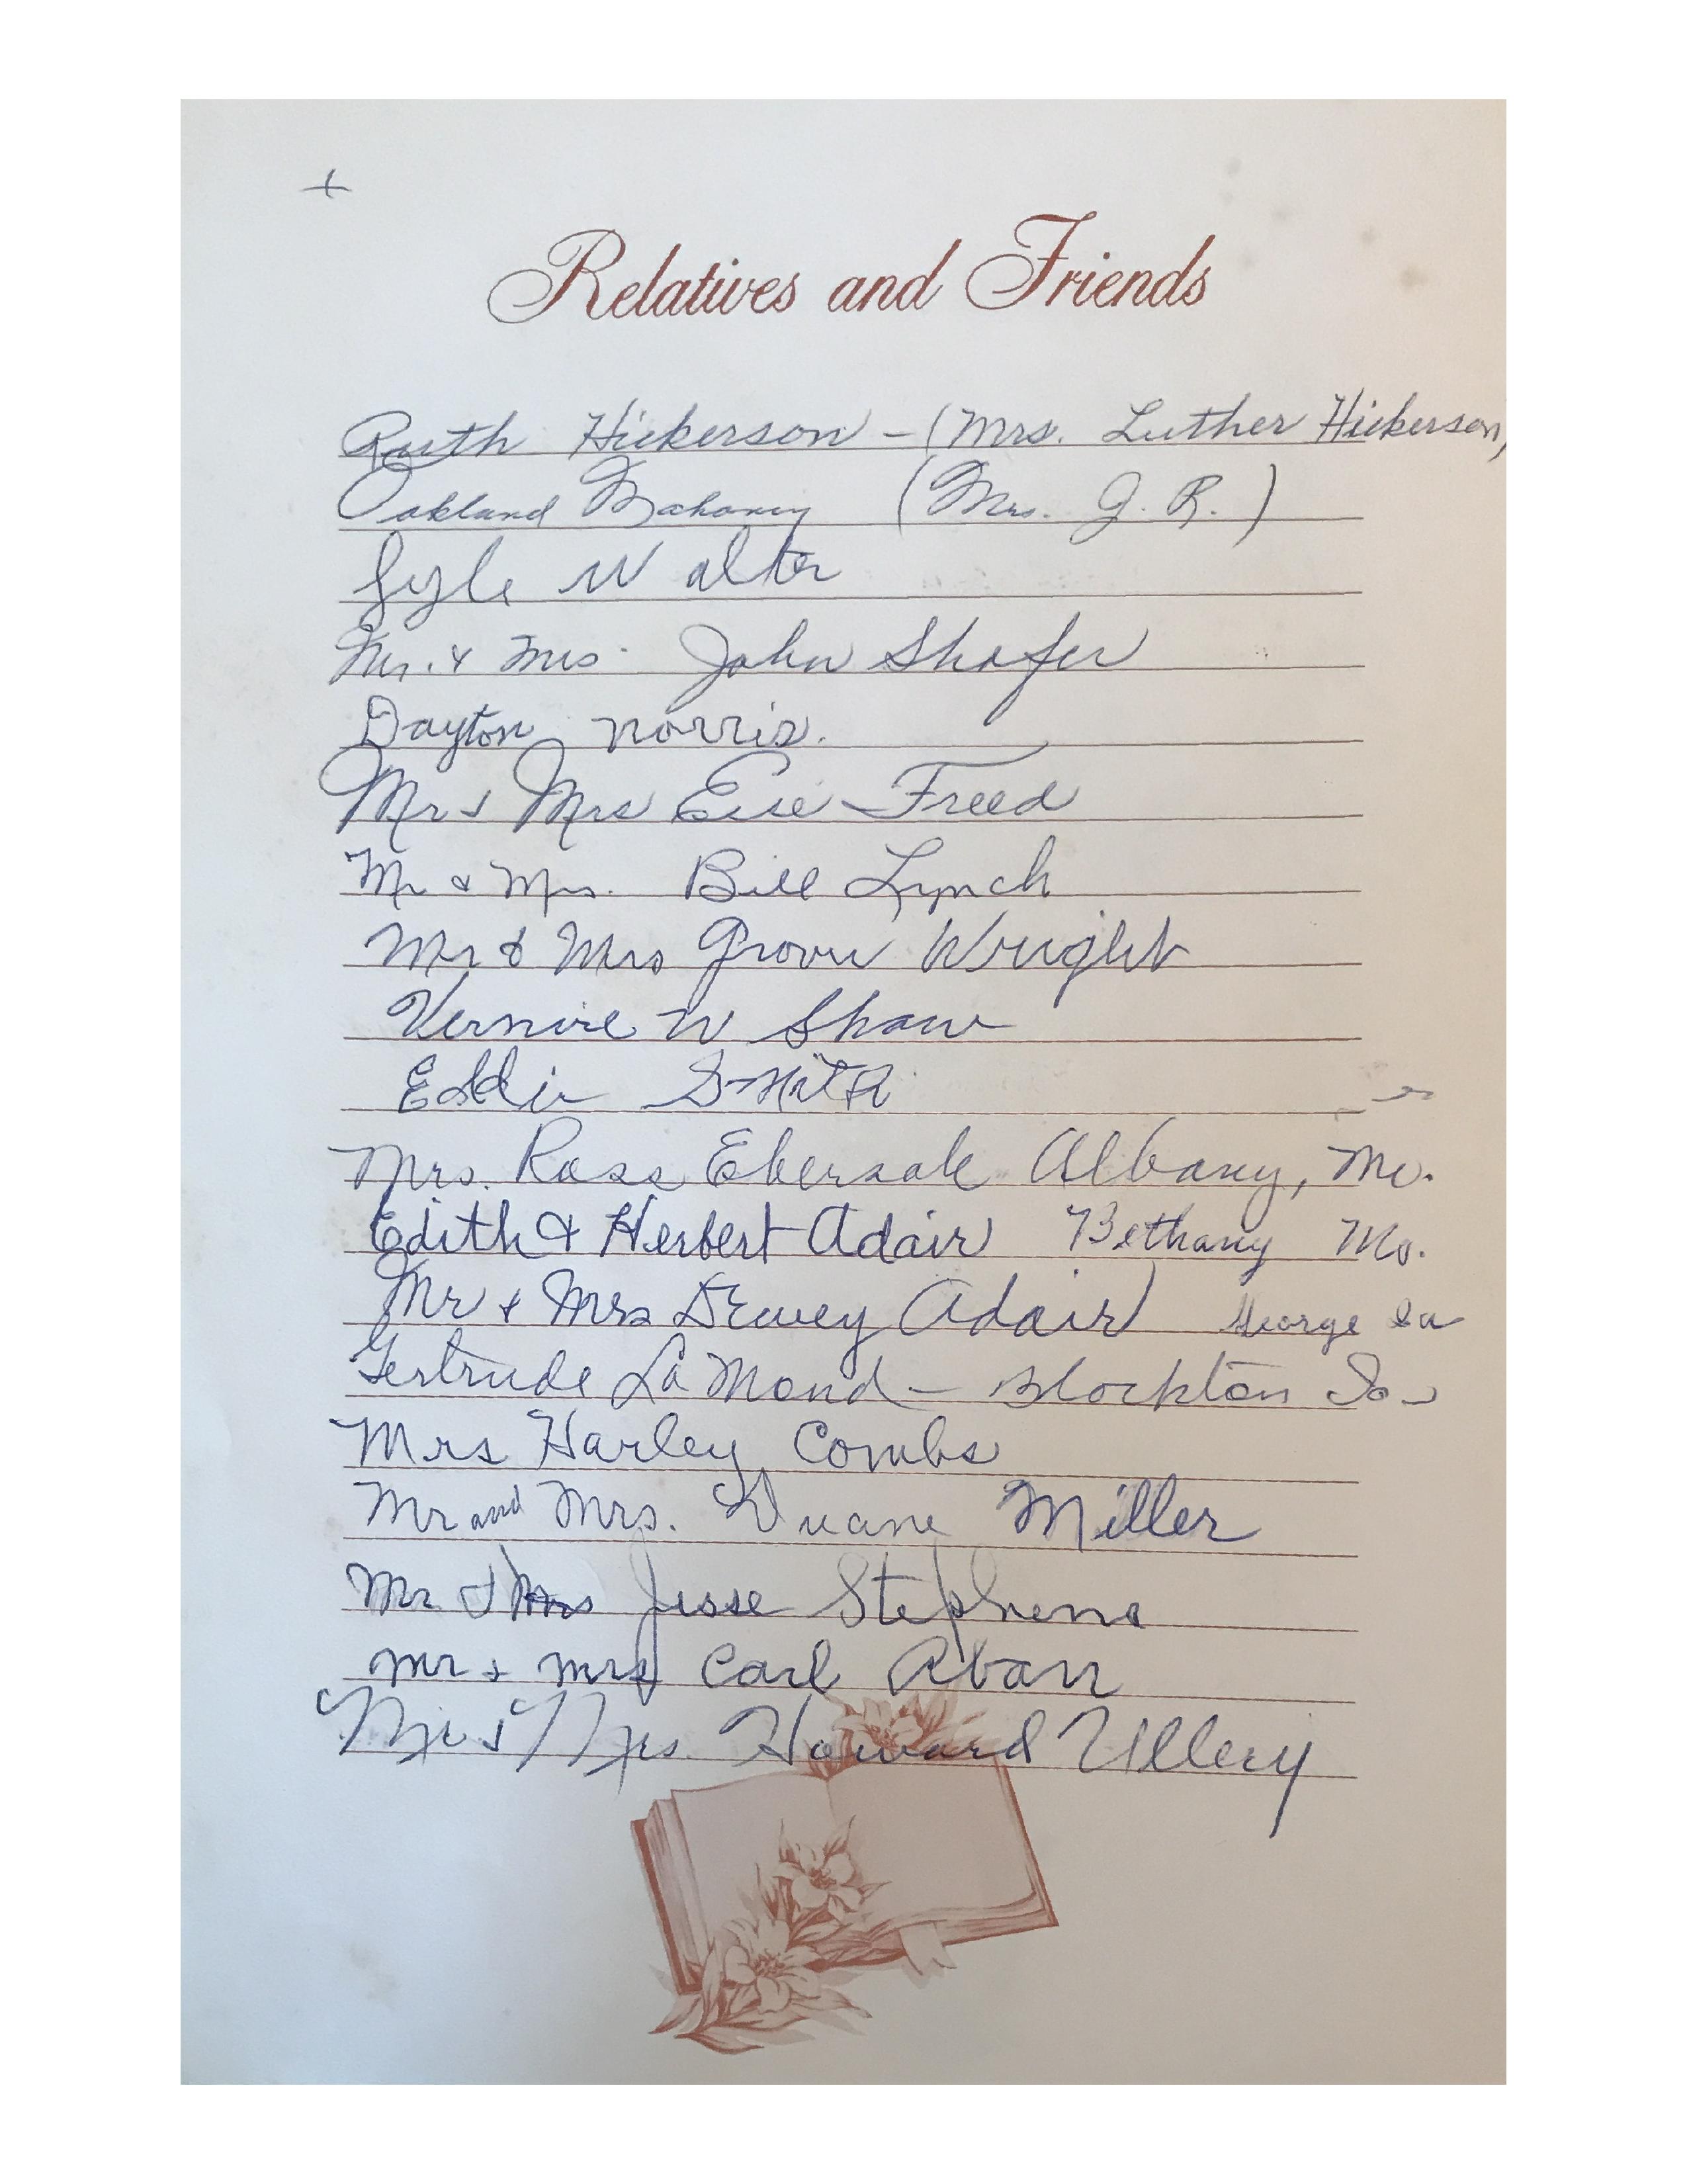 +
Relatives and Friends
Ruth Hickerson - (Mrs. Luther Hickerson)
Oakland Mahoney (Mrs. J. R.)
Lyle Walter
Mr. & Mrs. John Shafer
Dayton Norris.
Mr & Mrs Freed
Mr & Mrs. Bill Lynch
Mr & Mrs Grover Wright
W Shaw
Eddie Smith
Mrs. Ross Ebersole Albany, Mo.
Edith & Herbert Adair Bethany Mo.
Mr & Mrs Dewey Adair George Ia
Gertrude La Mond - Stockton
Mrs Harley Combs
Mr and Mrs. Duane Miller
Mr & Mrs Jesse Stephens
Mr & Mrs Carl
Mr & Mrs. Howard Ullery